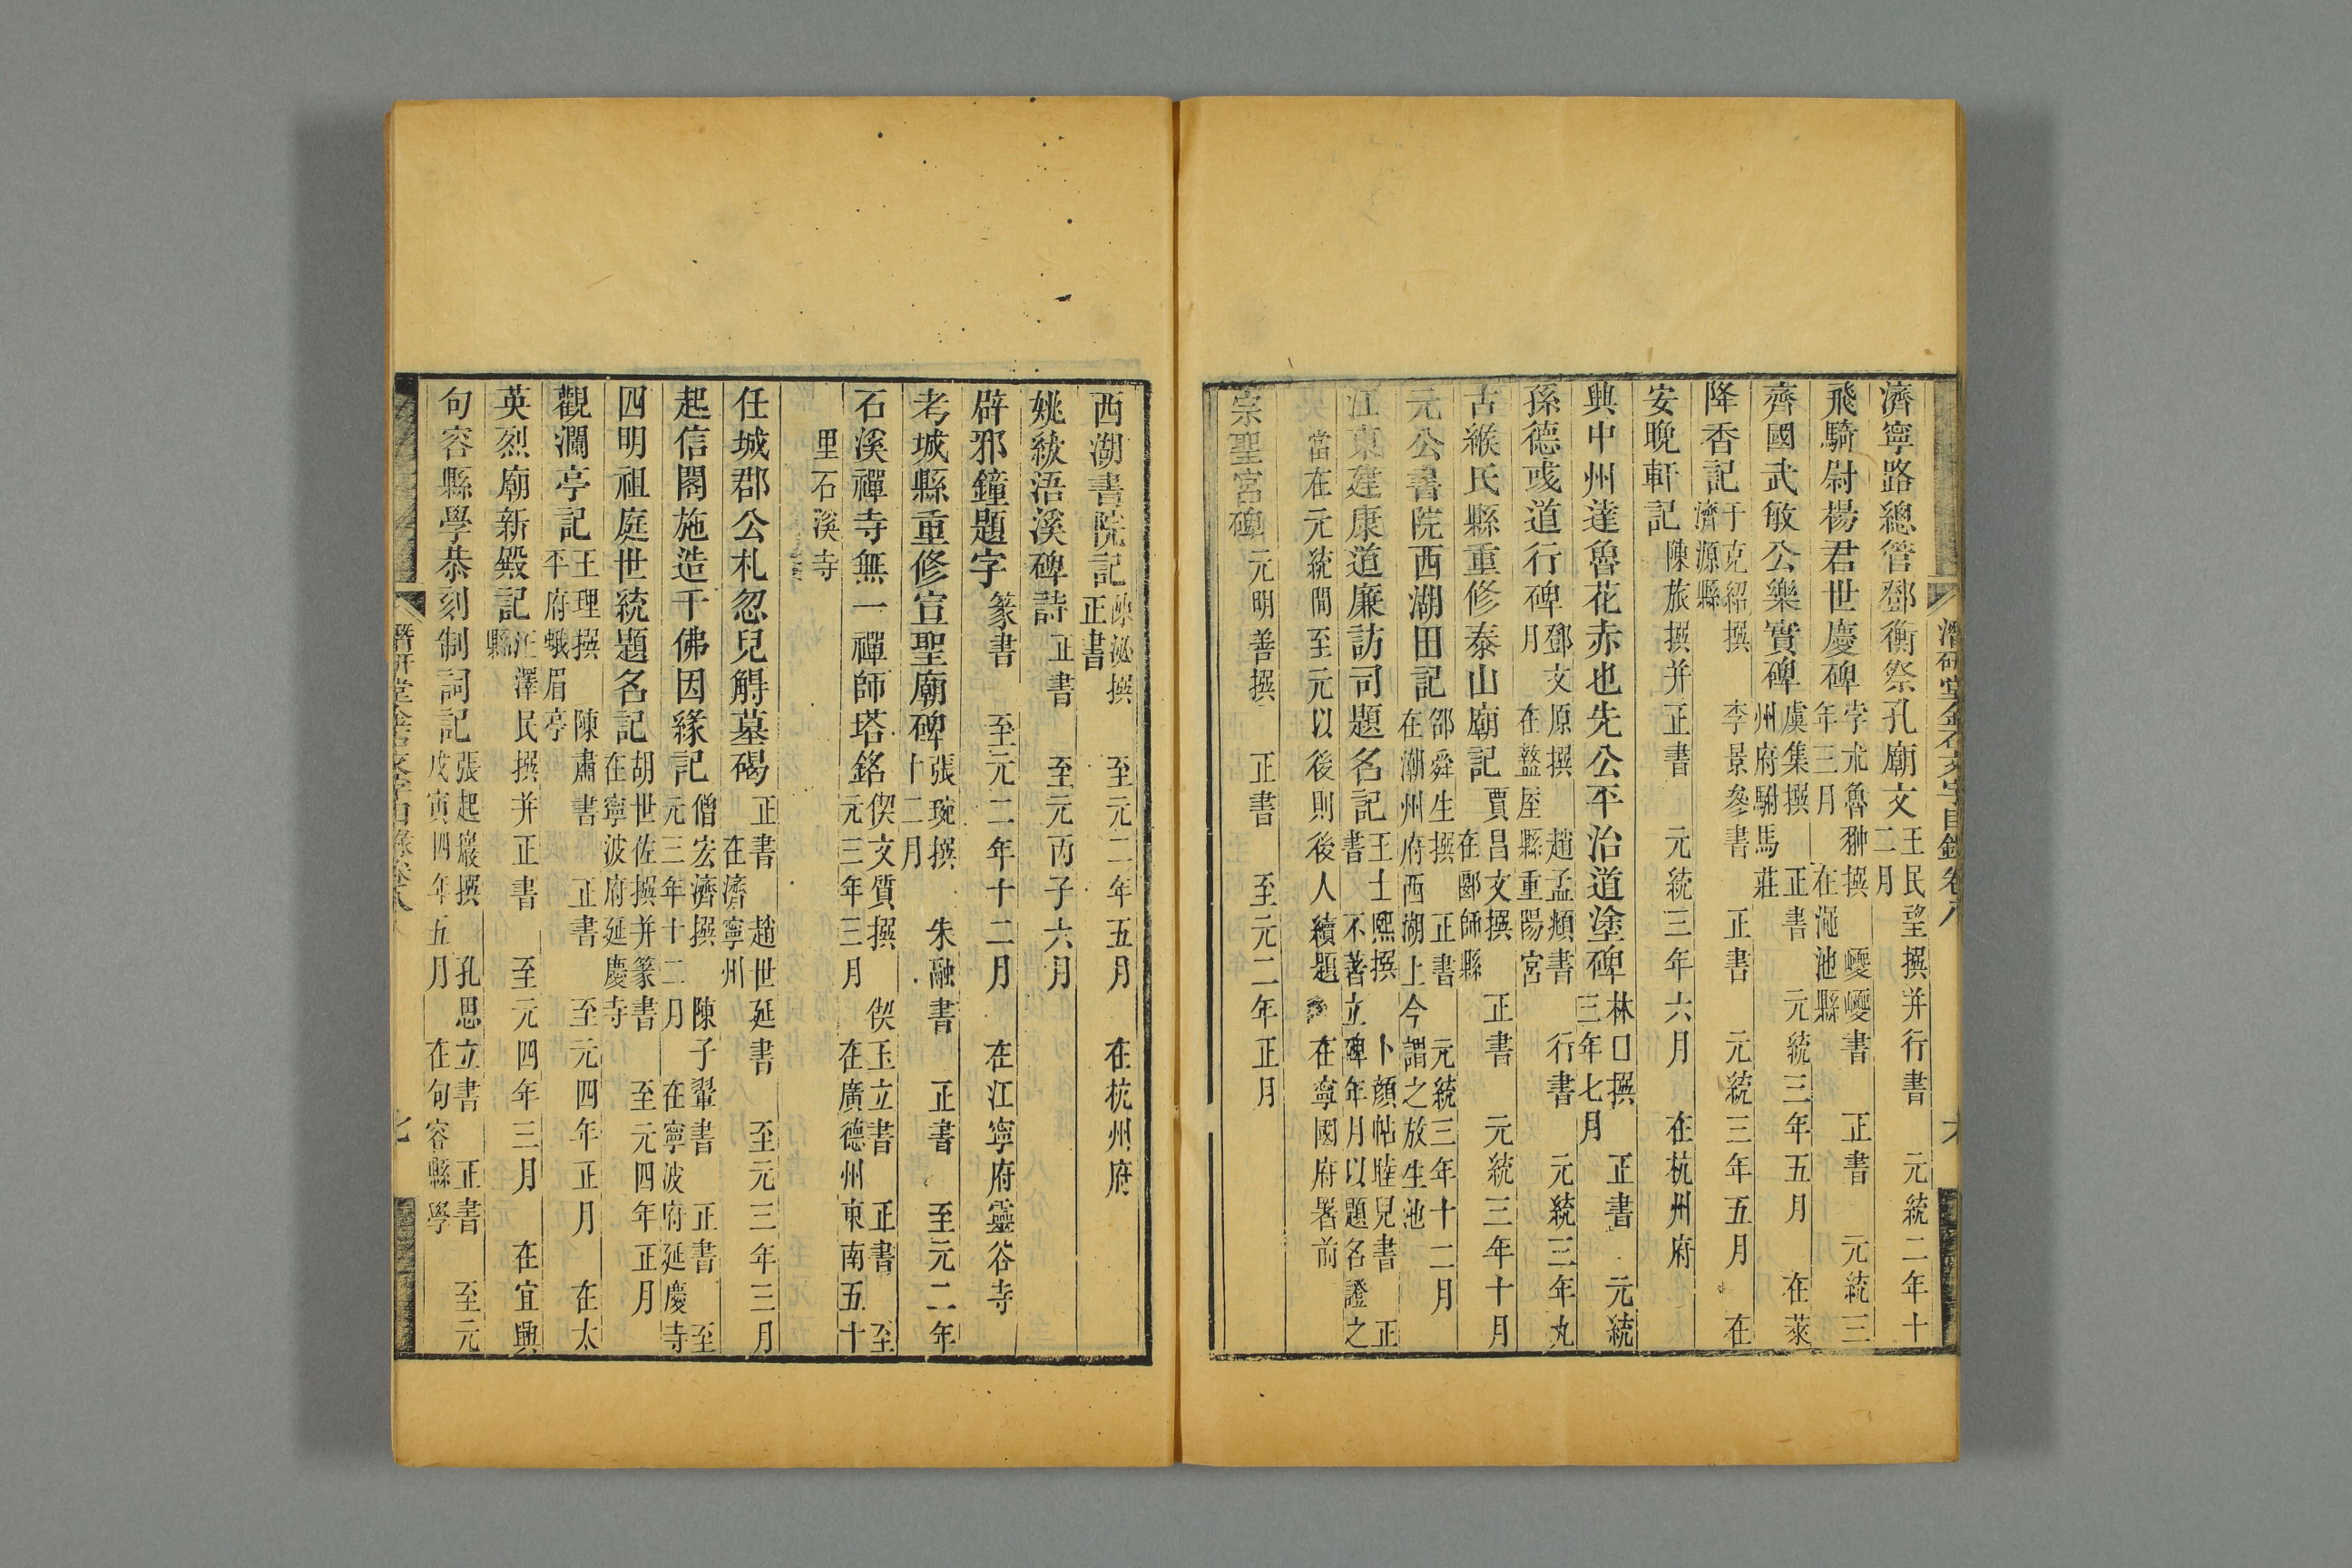 潛研堂金石文字目錄卷八
濟寧路總管鄧衡祭孔廟文 王民望撰并行書 元統二年十二月
飛騎尉楊君世慶碑 孛朮魯翀撰 巙巙書 正書 元統三年三月 在澠池縣
齊國武敏公樂實碑 虞集撰 正書 元統三年五月 在萊州府駙馬莊
降香記 于克紹撰 李景參書 正書 元統三年五月 在濟源縣
安晚軒記 陳旅撰并正書 元統三年六月 在杭州府
興中州達魯花赤也先公平治道塗碑 林口撰 正書 元統三年七月
孫德彧道行碑 鄧文原撰 趙孟頫書 行書 元統三年九月 在盩厔縣重陽宮
古緱氏縣重修泰山廟記 賈昌文撰 正書 元統三年十月 在郾師縣
元公書院西湖田記 邵舜生撰 正書 元統三年十二月 在潮州府西湖上今謂之放生池
江東建康道廉訪司題名記 王士熙撰 卜顏帖睦兒書 正書 不著立碑年月以題名證之
當在元統間至元以後則後人續題 在寧國府署前
崇聖宮碑 元明善撰 正書 至元二年正月
西湖書院記 陳泌撰 至元二年五月 在杭州府 正書
姚紱浯溪碑詩 正書 至元丙子六月
辟邪鐘題字 篆書 至元二年十二月 在江寧府靈谷寺
考城縣重修宣聖廟碑 張琬撰 朱融書 正書 至元二年十二月
石溪禪寺無一禪師塔銘 偰文質撰 偰玉立書 正書 至元三年三月 在廣德州東南五十
里石溪寺
任城郡公札忽兒䚟墓碣 正書 趙世延書 至元三年三月 在濟寧州
起信閣施造千佛因緣記 僧宏濟撰 陳子翬書 正書 至元三年十二月 在寧波府延慶寺
四明祖庭世統題名記 胡世佐撰并篆書 至元四年正月 在寧波府延慶寺
觀瀾亭記 王理撰 陳肅書 正書 至元四年正月 在太平府蛾眉亭
英烈廟新殿記 汪澤民撰并正書 至元四年三月 在宜興縣
句容縣學恭刻制詞記 張起巖撰 孔思立書 正書 至元戊寅四年五月 在句容縣學
潛研堂金石文字目錄卷八 七